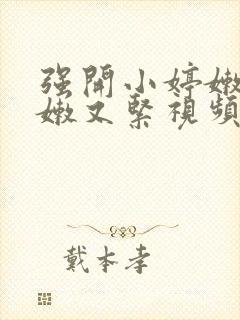 强開小婷嫩
嫩又緊視頻
戴本孝